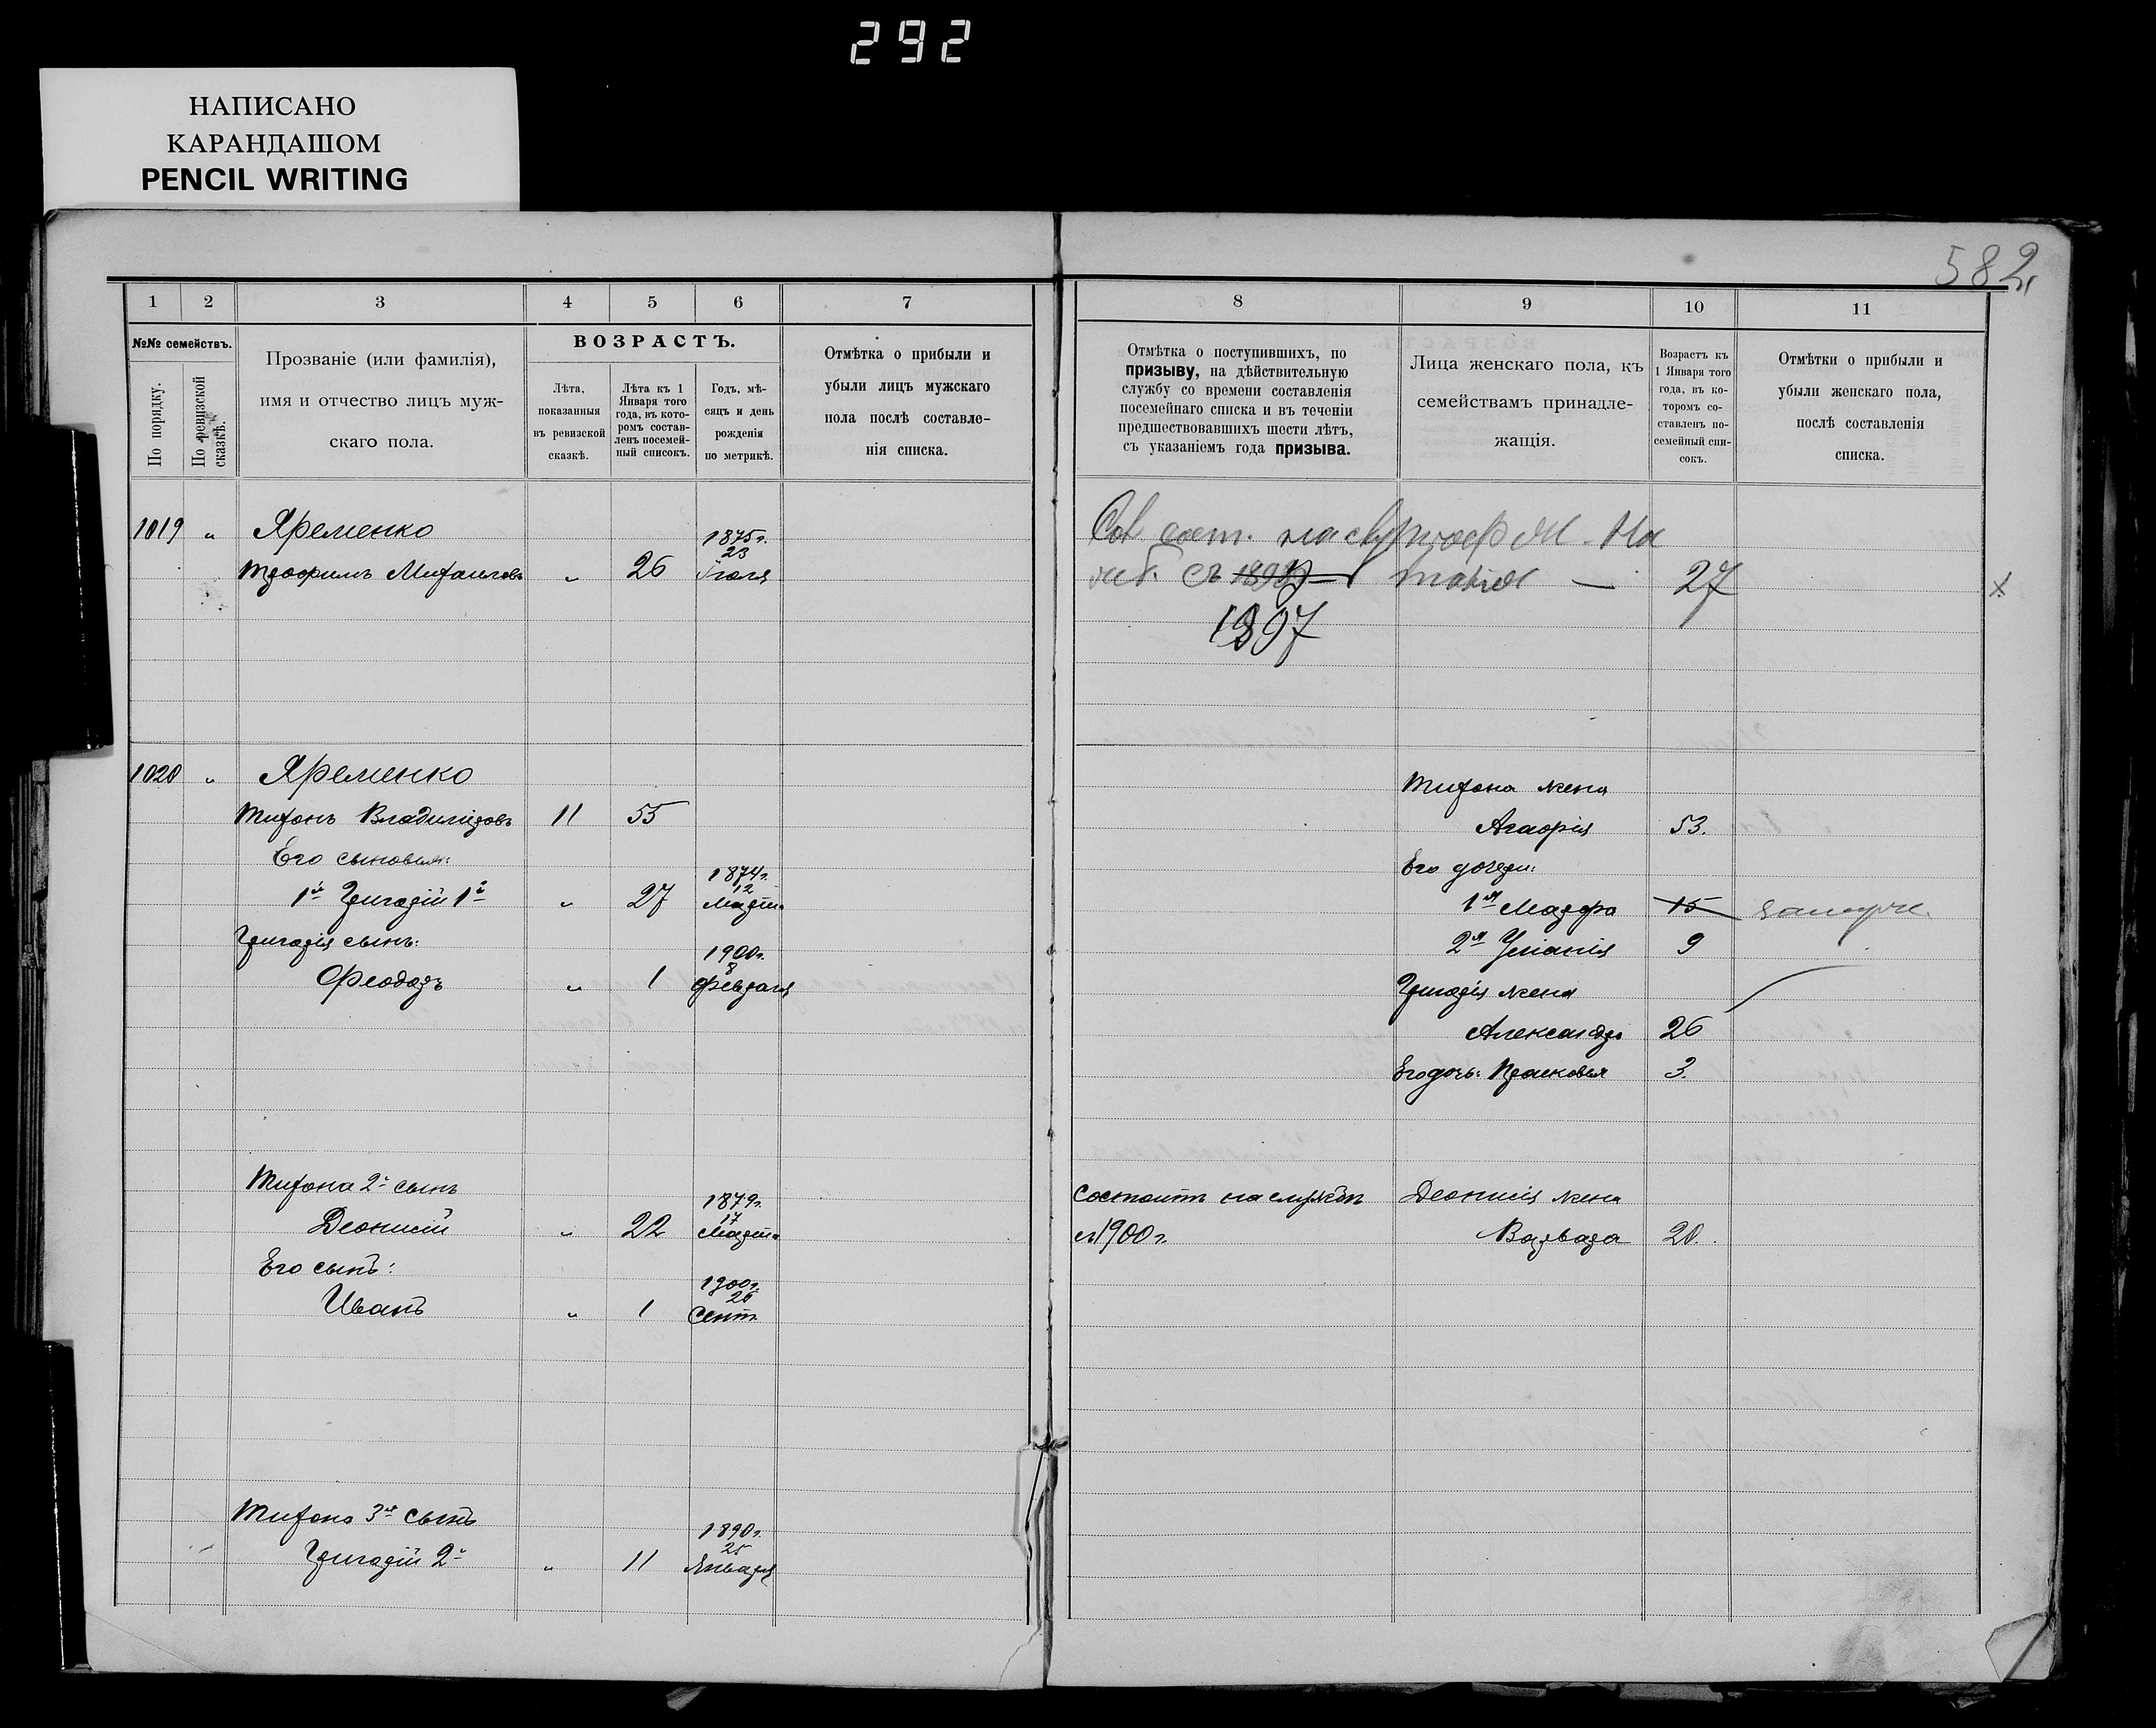 292
НАПИСАНО
КАРАНДАШОМ
PENCIL WRITING
582
1 2 3 4 5 6 7
№№ семействъ.
По порядку.
По ревизской сказкѣ.
Прозваніе (или фамилія),
имя и отчество лицъ муж-
скаго пола.
ВОЗРАСТЪ.
Лѣта,
показанныя
въ ревизской
сказкѣ.
Лѣта къ 1
Января того
года, въ кото-
ромъ состав-
ленъ посемей-
ный списокъ.
Годъ, мѣ-
сяцъ и день
рожденія
по метрикѣ.
Отмѣтка о прибыли и
убыли лицъ мужскаго
пола послѣ составле-
нія списка.
1019 „ Яременко 1875 г.
23
Трофимъ Митфановъ „ 26 Іюля
1020 „ Яременко
Трифонъ Владиміровъ 11 55
Его сыновья:
1874 г.
12
1й Григорій 1й „ 27 Марта
Григорія сынъ:
1900 г.
8
Феодоръ „ 1 Февраля
Трифона 2й сынъ
1879 г.
17
Деонисій „ 22 Марта
Его сынъ:
1900 г.
26
Иванъ „ 1 Сент.
Трифона 3й сынъ
1890 г.
25
Григорій 2й „ 11 Января
8 9 10 11
Отмѣтка о поступившихъ, по
призыву, на дѣйствительную
службу со времени составленія
посемейнаго списка и въ теченіи
предшествовавшихъ шести лѣтъ,
съ указаніемъ года призыва.
Лица женскаго пола, къ
семействамъ принадле-
жащія.
Возрастъ къ
1 Января того
года, въ ко-
торомъ со-
ставленъ по-
семейный спи-
сокъ.
Отмѣтки о прибыли и
убыли женскаго пола,
послѣ составленія
списка.
сост. на
съ 27 х
1897
Трифона жена
Агафія 53.
Его дочери:
1я Марфа 15 замуж.
2я Уліанія 9
Григорія жена
Александра 26
Его дочь: Прасковья 3.
Состоитъ на службѣ Деонисія жена
съ 1900 г. Варвара 20.